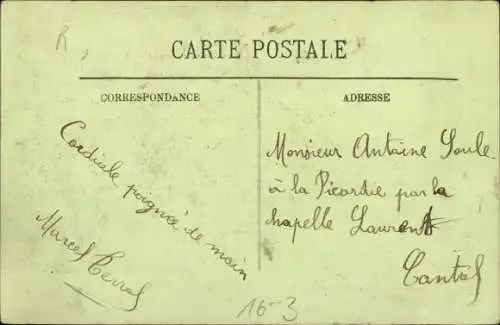 R,
CARTE POSTALE
CORRESPONDANCE
ADRESSE
Cordiale poignée de main
Marcel
Monsieur Antoine Soule
à la Picardie par la
chapelle Laurent
Cantal
16-3